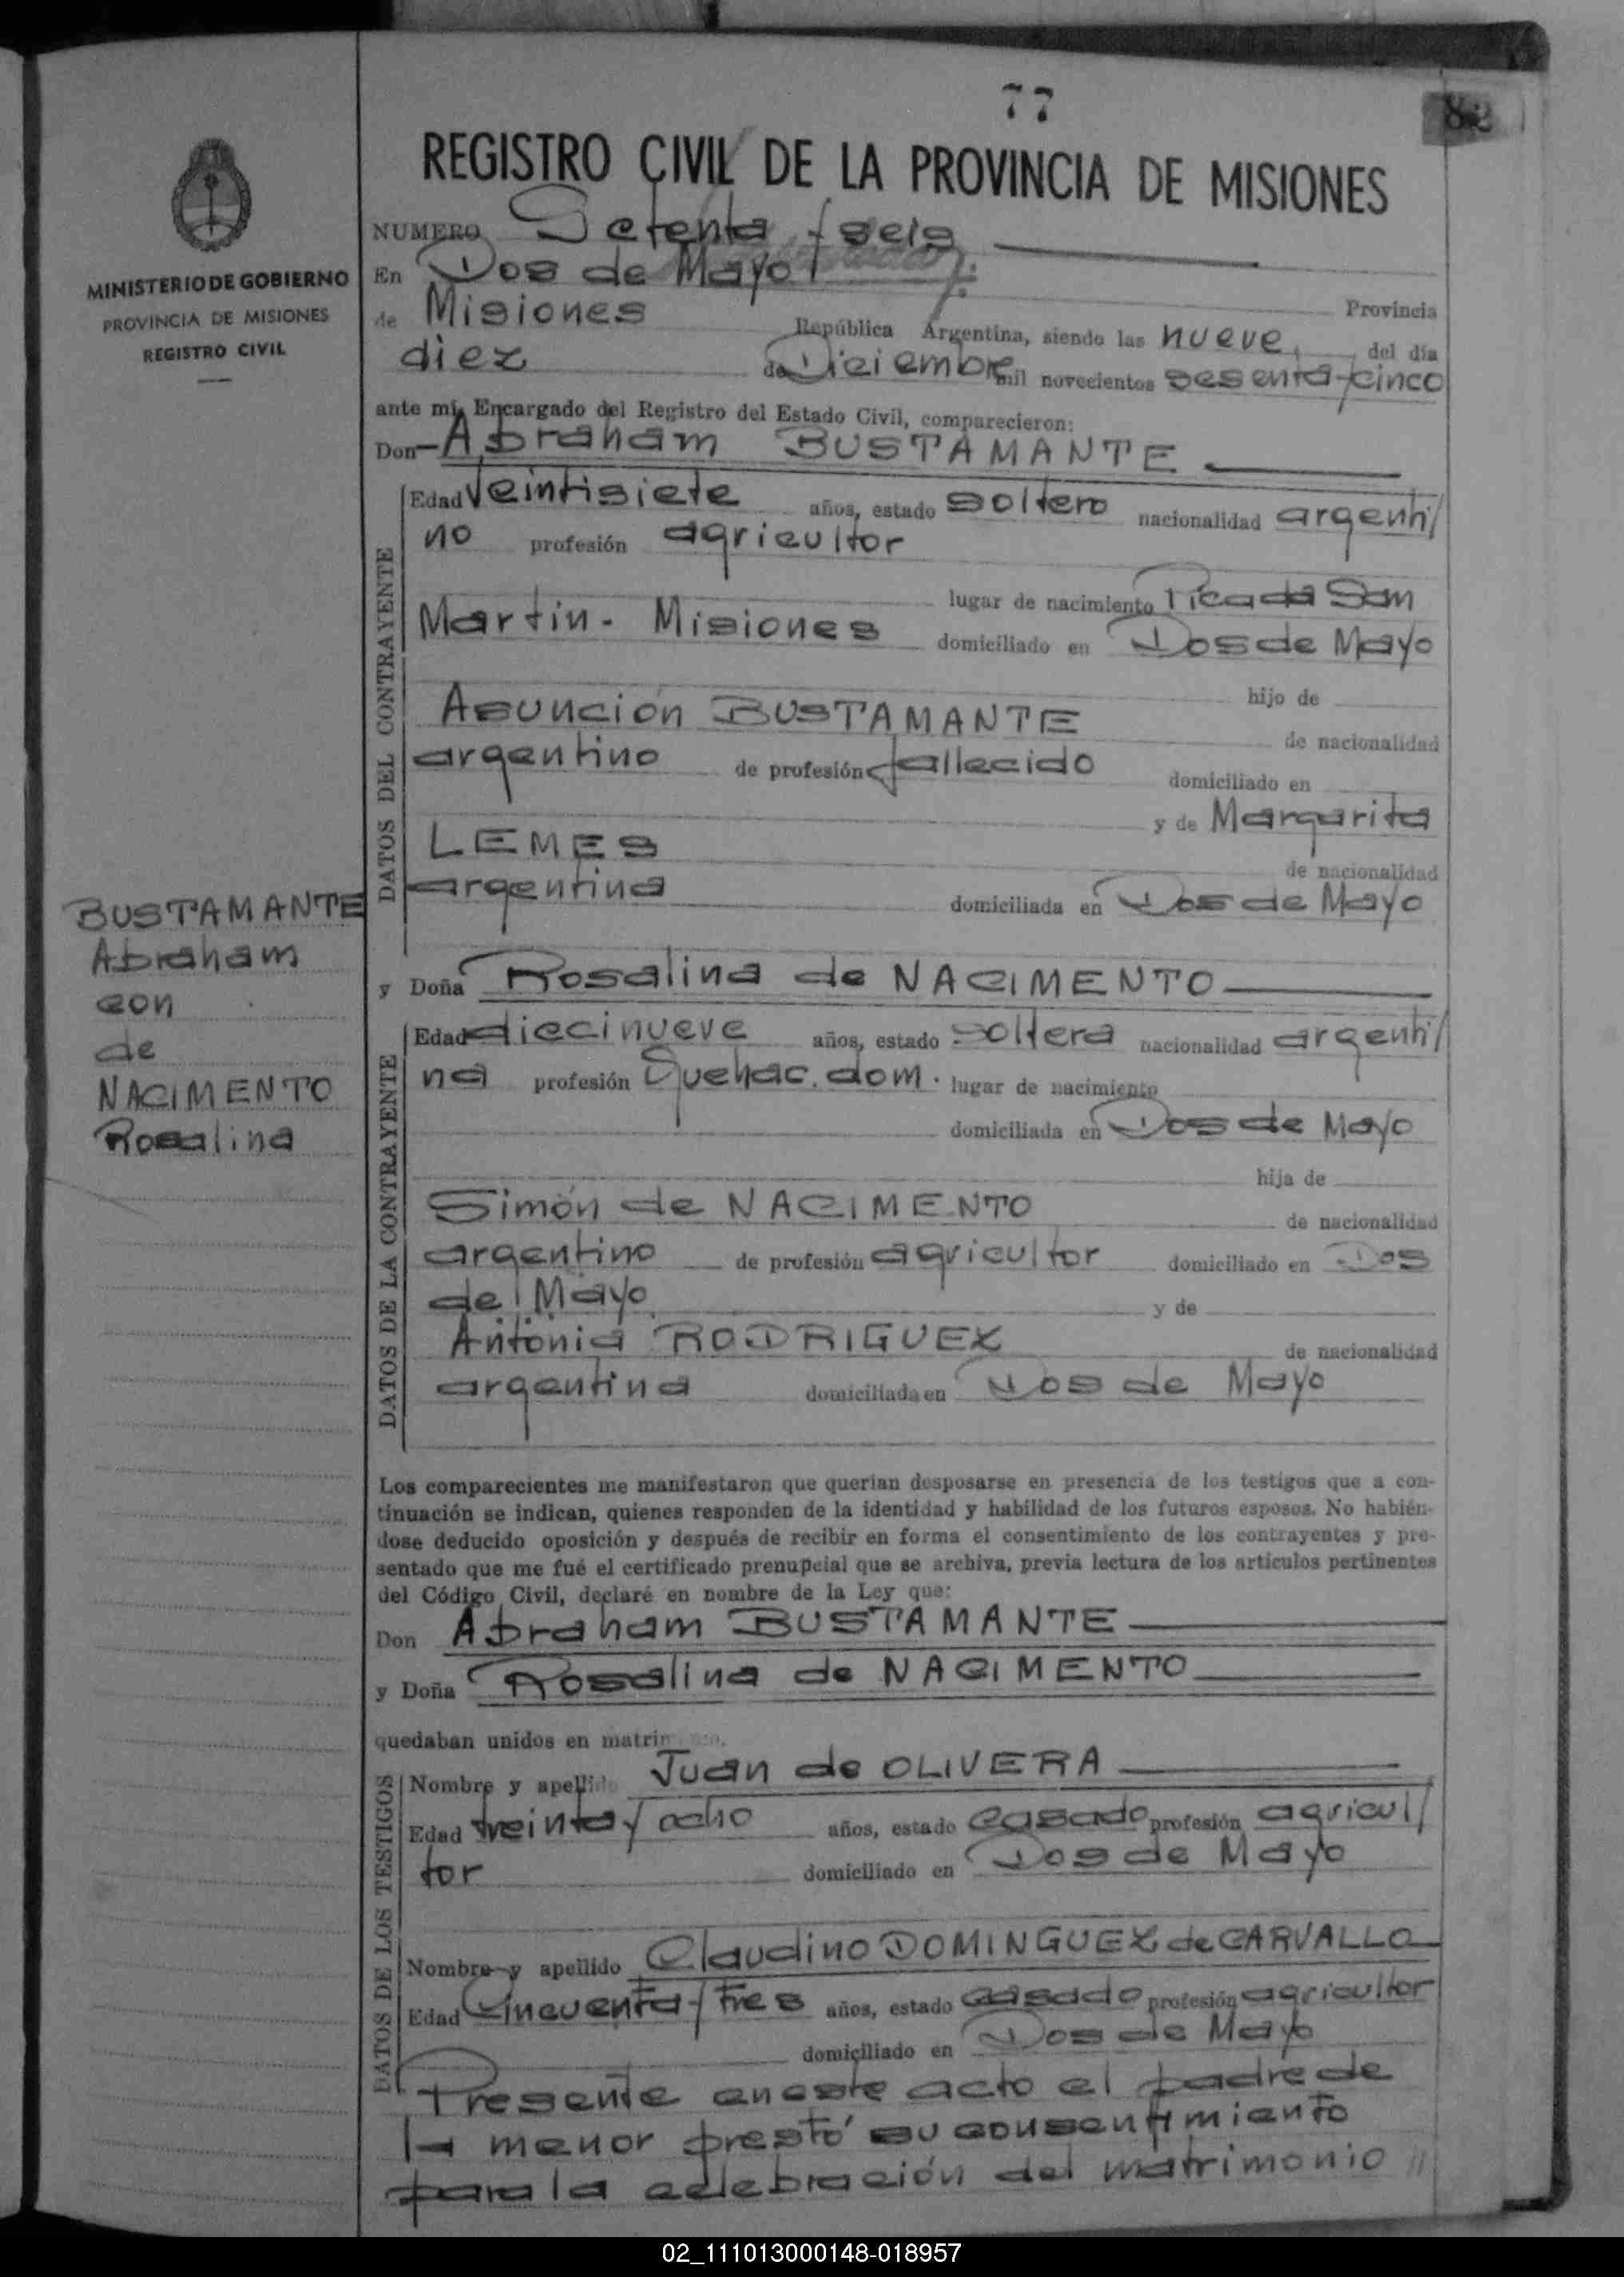 77
82
REGISTRO CIVIL DE LA PROVINCIA DE MISIONES
MINISTERIO DE GOBIERNO
PROVINCIA DE MISIONES
REGISTRO CIVIL
NUMERO Setenta y seis
En Dos de Mayo
Provincia
de Misiones República Argentina, siendo las nueve, del día
diez de Diciembre mil novecientos sesenta y cinco
ante mí, Encargado del Registro del Estado Civil, comparecieron:
Don Abraham BUSTAMANTE
DATOS DEL CONTRAYENTE
Edad Veintisiete años, estado soltero nacionalidad argenti/
no profesión agricultor
lugar de nacimiento Picada San
Martin. Misiones domiciliado en Dos de Mayo
hijo de
Asunción BUSTAMANTE
de nacionalidad
argentino de profesión fallecido domiciliado en
y de Margarita
LEMES
de nacionalidad
argentina domiciliada en Dos de Mayo
BUSTAMANTE
Abraham
con
de
NACIMENTO
Rosalina
y Doña Rosalina de NACIMENTO
DATOS DE LA CONTRAYENTE
Edad diecinueve años, estado soltera nacionalidad argenti/
na profesión Quehac. dom. lugar de nacimiento
domiciliada en Dos de Mayo
hija de
Simón de NACIMENTO
de nacionalidad
argentino de profesión agricultor domiciliado en Dos
de Mayo y de
Antonia RODRIGUEZ
de nacionalidad
argentina domiciliada en Dos de Mayo
Los comparecientes me manifestaron que querían desposarse en presencia de los testigos que a con-
tinuación se indican, quienes responden de la identidad y habilidad de los futuros esposos. No habién-
dose deducido oposición y después de recibir en forma el consentimiento de los contrayentes y pre-
sentado que me fué el certificado prenupcial que se archiva, previa lectura de los artículos pertinentes
del Código Civil, declaré en nombre de la Ley que:
Don Abraham BUSTAMANTE
y Doña Rosalina de NACIMENTO
quedaban unidos en
DATOS DE LOS TESTIGOS
Nombre y apellido Juan de OLIVERA
Edad treinta y ocho años, estado casado profesión agricul//
tor domiciliado en Dos de Mayo
Nombre y apellido Claudino DOMINGUEZ de CARVALLO
Edad Cincuenta y tres años, estado casado profesión agricultor
domiciliado en Dos de Mayo
Presente en este acto el padre de
la menor prestó su consentimiento
para la celebración del matrimonio //
02_111013000148-018957